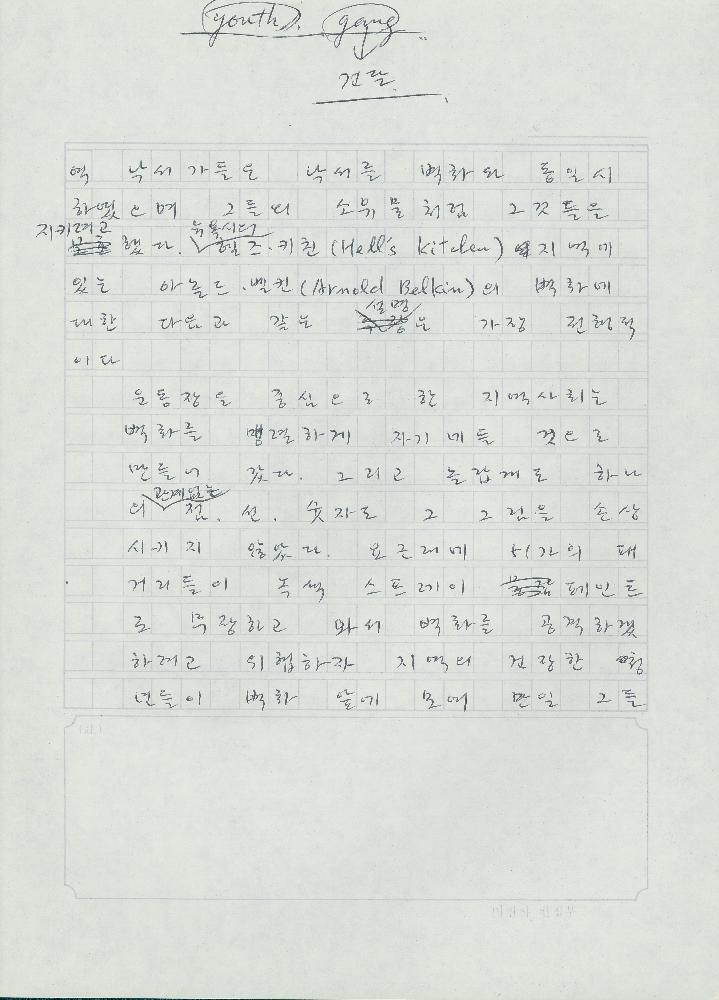 youth. gang
건달
역 낙서가들은 낙서를 벽화와 동일시
하였으며 그들의 소유물처럼 그것들을
지키려고
했다. 뉴욕시티 헬즈·키친 (Hell's Kitchen) 지역에
있는 아놀드·벨킨 (Arnold Belkin)의 벽화에
대한 다음과 같은 설명은 가장 전형적
이다
운동장을 중심으로 한 지역사회는
벽화를 맹렬하게 자기네들 것으로
만들어 갔다. 그리고 놀랍게도 하나
의 관계없는 점. 선. 숫자도 그 그림을 손상
시키지 않았다. 요근래에 51가의 패
거리들이 녹색 스프레이 페인트
로 무장하고 와서 벽화를 공격하겠
하려고 위협하자 지역의 건장한 청
년들이 벽화 앞에 모여 만일 그들